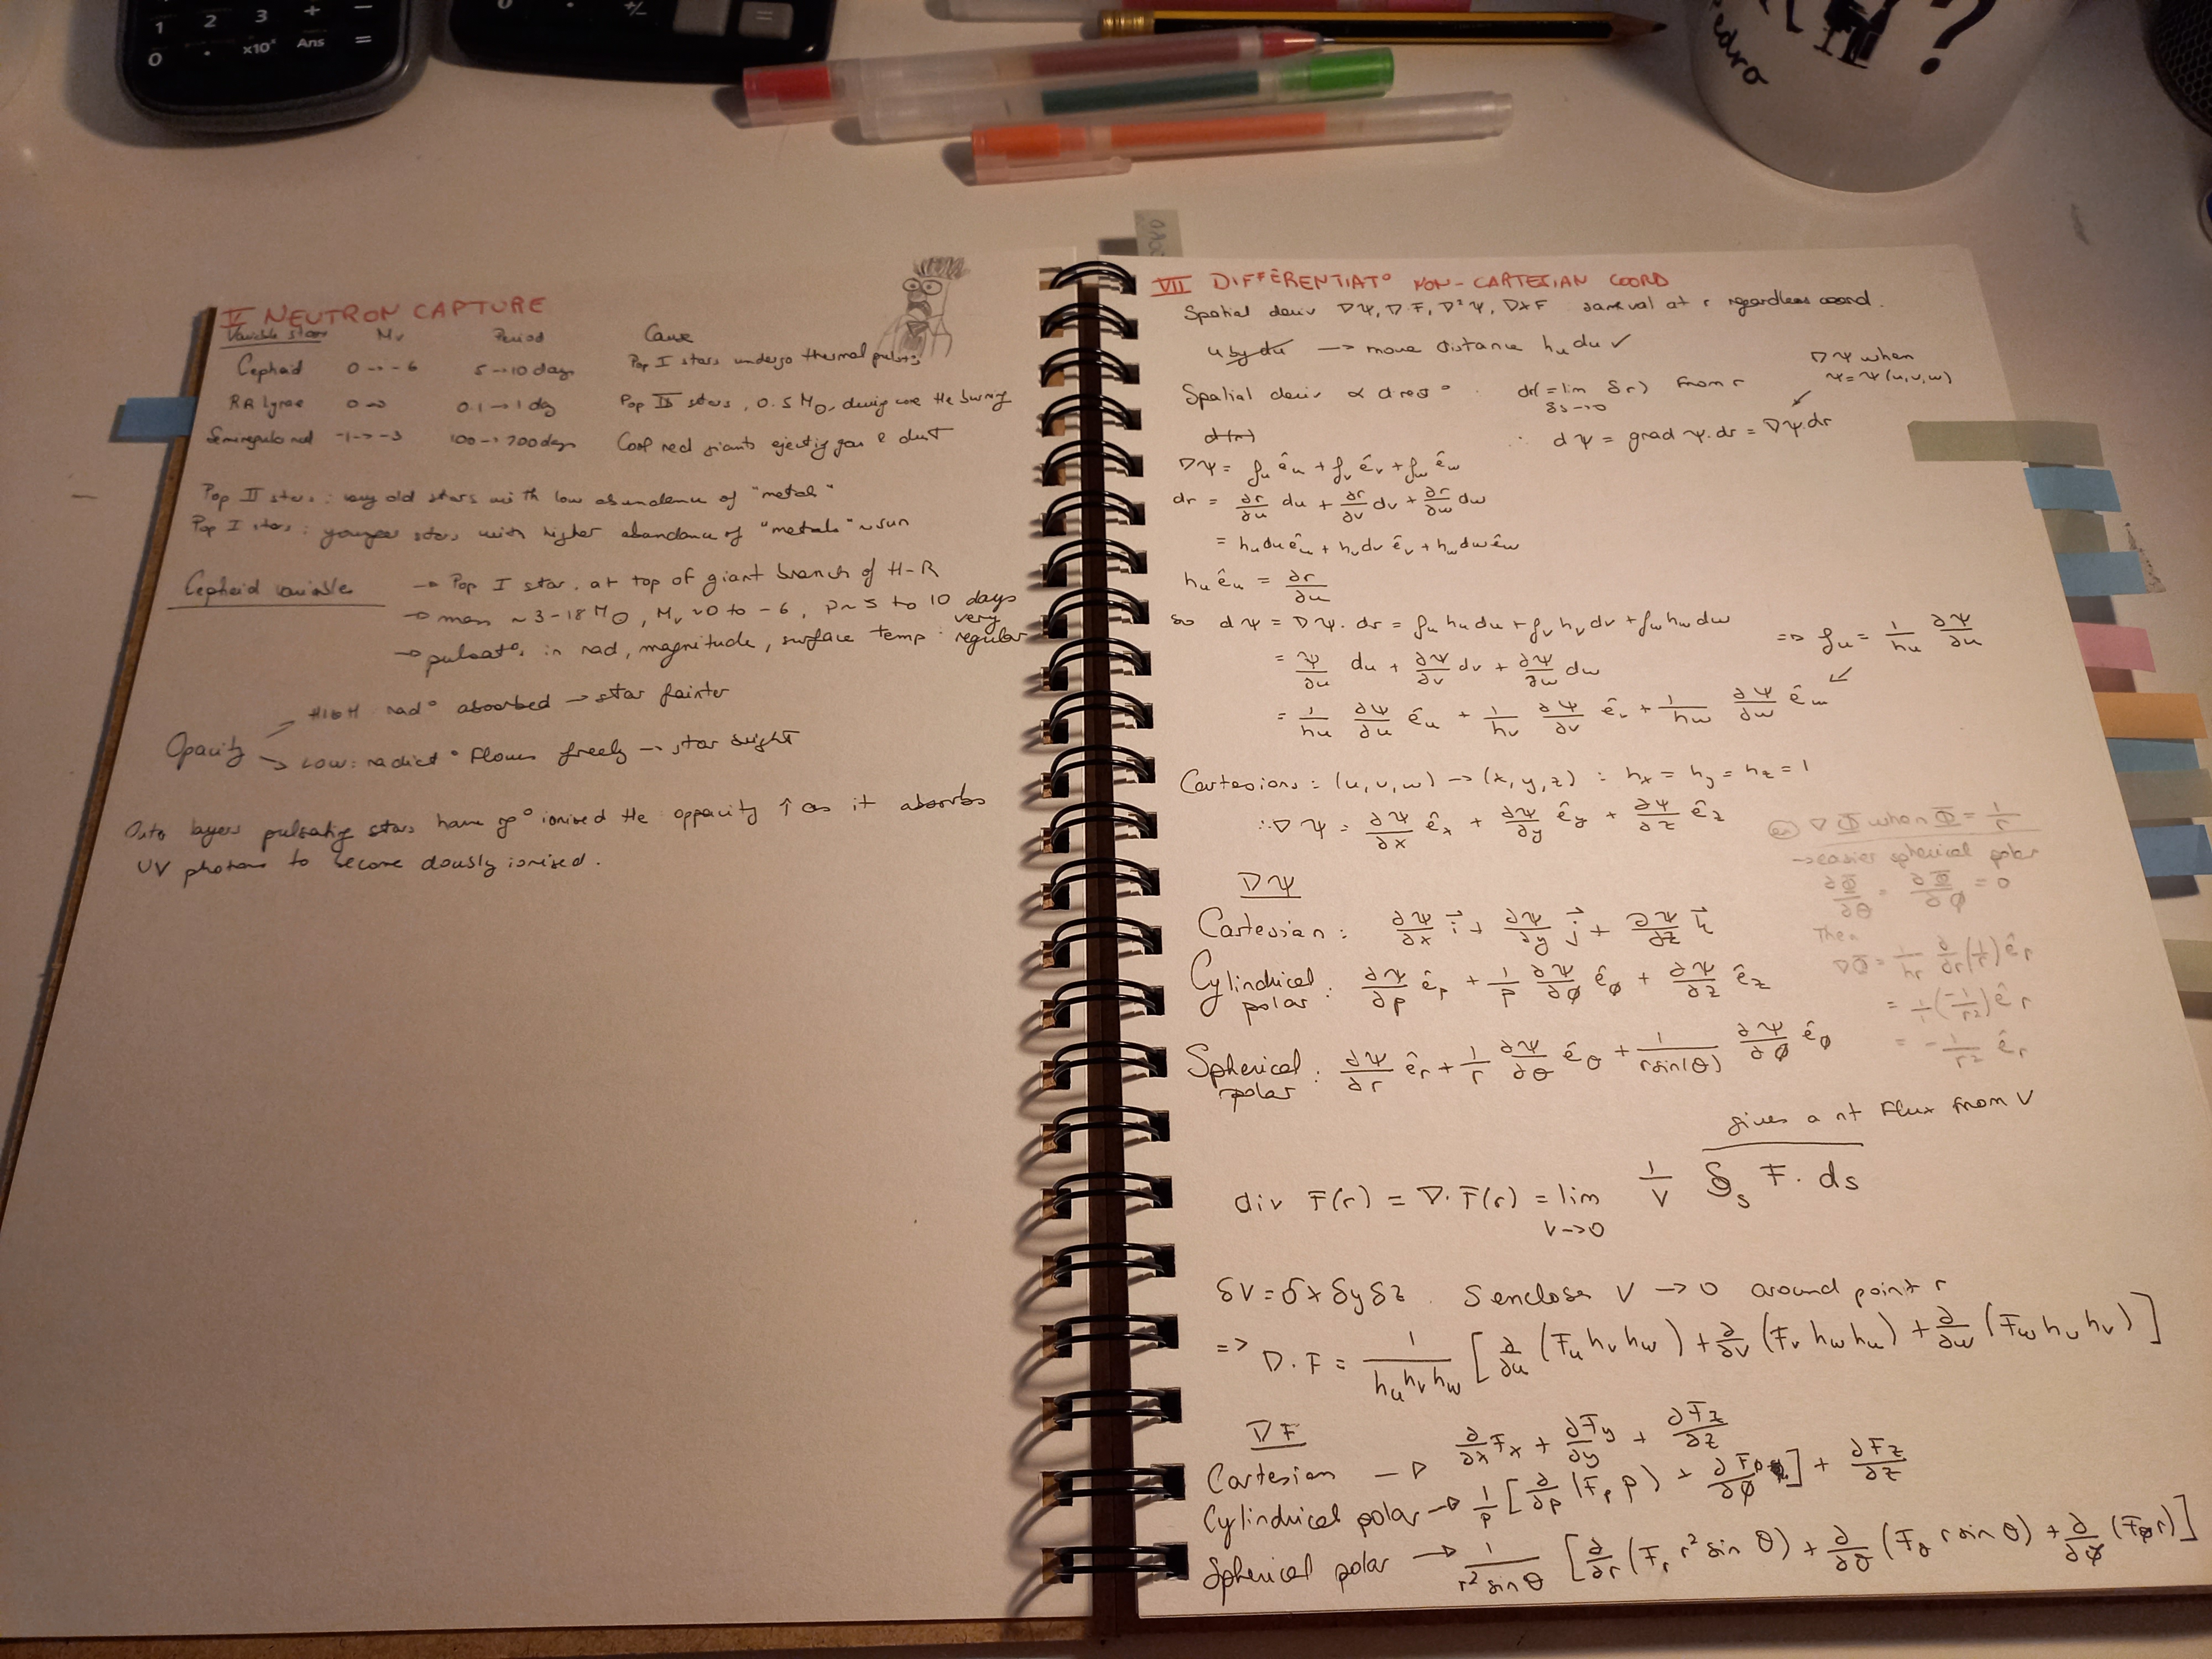 V NEUTRON CAPTURE
Variable stars Mv Period Cause
Cepheid 0 → -6 5 → 10 days Pop I stars undergo thermal pulses
RR Lyrae 0 → 0.1 → 1 day Pop II stars, 0.5 M⊙, during core He burning
Semiregular red -1 → -3 100 → 200 days Cool red giants ejecting gas & dust
Pop II stars : very old stars with low abundance of "metal"
Pop I stars : younger stars with higher abundance of "metals" ~ sun
Cepheid variable → Pop I star, at top of giant branch of H-R
→ mass ~ 3-18 M⊙, Mv ~ 0 to -6, P ~ 5 to 10 days
→ pulsat° in rad, magnitude, surface temp : very regular
→ HIGH rad° absorbed → star fainter
Opacity → LOW : radiat° flows freely → star bright
Outer layers pulsating stars have ionised He : oppacity ↑ as it absorbs
UV photons to become doubly ionised.
VII DIFFERENTIAT° NON-CARTESIAN COORD
Spatial deriv ∇ψ, ∇·F, ∇²ψ, ∇×F : same val at r regardless coord.
u by du → move distance hu du ✓
Spatial deriv dr = lim δr) from r
δs→0
∇ψ when
ψ = ψ(u,v,w)
∴ dψ = grad ψ.dr = ∇ψ.dr
∇ψ = fu êu + fv êv + fw êw
dr = ∂r/∂u du + ∂r/∂v dv + ∂r/∂w dw
= hu du êu + hv dv êv + hw dw êw
hu êu = ∂r/∂u
so dψ = ∇ψ. dr = fu hu du + fv hv dv + fw hw dw ⇒ fu = 1/hu ∂ψ/∂u
= ∂ψ/∂u du + ∂ψ/∂v dv + ∂ψ/∂w dw
= 1/hu ∂ψ/∂u êu + 1/hv ∂ψ/∂v êv + 1/hw ∂ψ/∂w êw
Cartesians : (u,v,w) → (x,y,z) : hx = hy = hz = 1
∴ ∇ψ = ∂ψ/∂x êx + ∂ψ/∂y êy + ∂ψ/∂z êz
∇ψ
Cartesian : ∂ψ/∂x i + ∂ψ/∂y j + ∂ψ/∂z k
Cylindrical polar : ∂ψ/∂ρ êρ + 1/ρ ∂ψ/∂φ êφ + ∂ψ/∂z êz
Spherical polar : ∂ψ/∂r êr + 1/r ∂ψ/∂θ êθ + 1/rsin(θ) ∂ψ/∂φ êφ
ex) ∇Φ when Φ = 1/r
→ easier spherical polar
∂Φ/∂θ = ∂Φ/∂φ = 0
Then
∇Φ = 1/hr ∂/∂r (1/r) êr
= 1/1 (-1/r²) êr
= -1/r² êr
div F(r) = ∇.F(r) = lim 1/V ∮s F . ds
V→0
gives a nt flux from V
δV = δxδyδz . S encloses V → 0 around point r
=> ∇.F = 1/hu hv hw [∂/∂u (Fu hv hw) + ∂/∂v (Fv hw hu) + ∂/∂w (Fw hu hv)]
∇F
Cartesian → ∂/∂x Fx + ∂Fy/∂y + ∂Fz/∂z
Cylindrical polar → 1/ρ [∂/∂ρ (Fρ ρ) + ∂Fφ/∂φ] + ∂Fz/∂z
Spherical polar → 1/r² sinθ [∂/∂r (Fr r² sin θ) + ∂/∂θ (Fθ r sin θ) + ∂/∂φ (Fφ r)]
1 2 3 + −
0 . x10ˣ Ans =